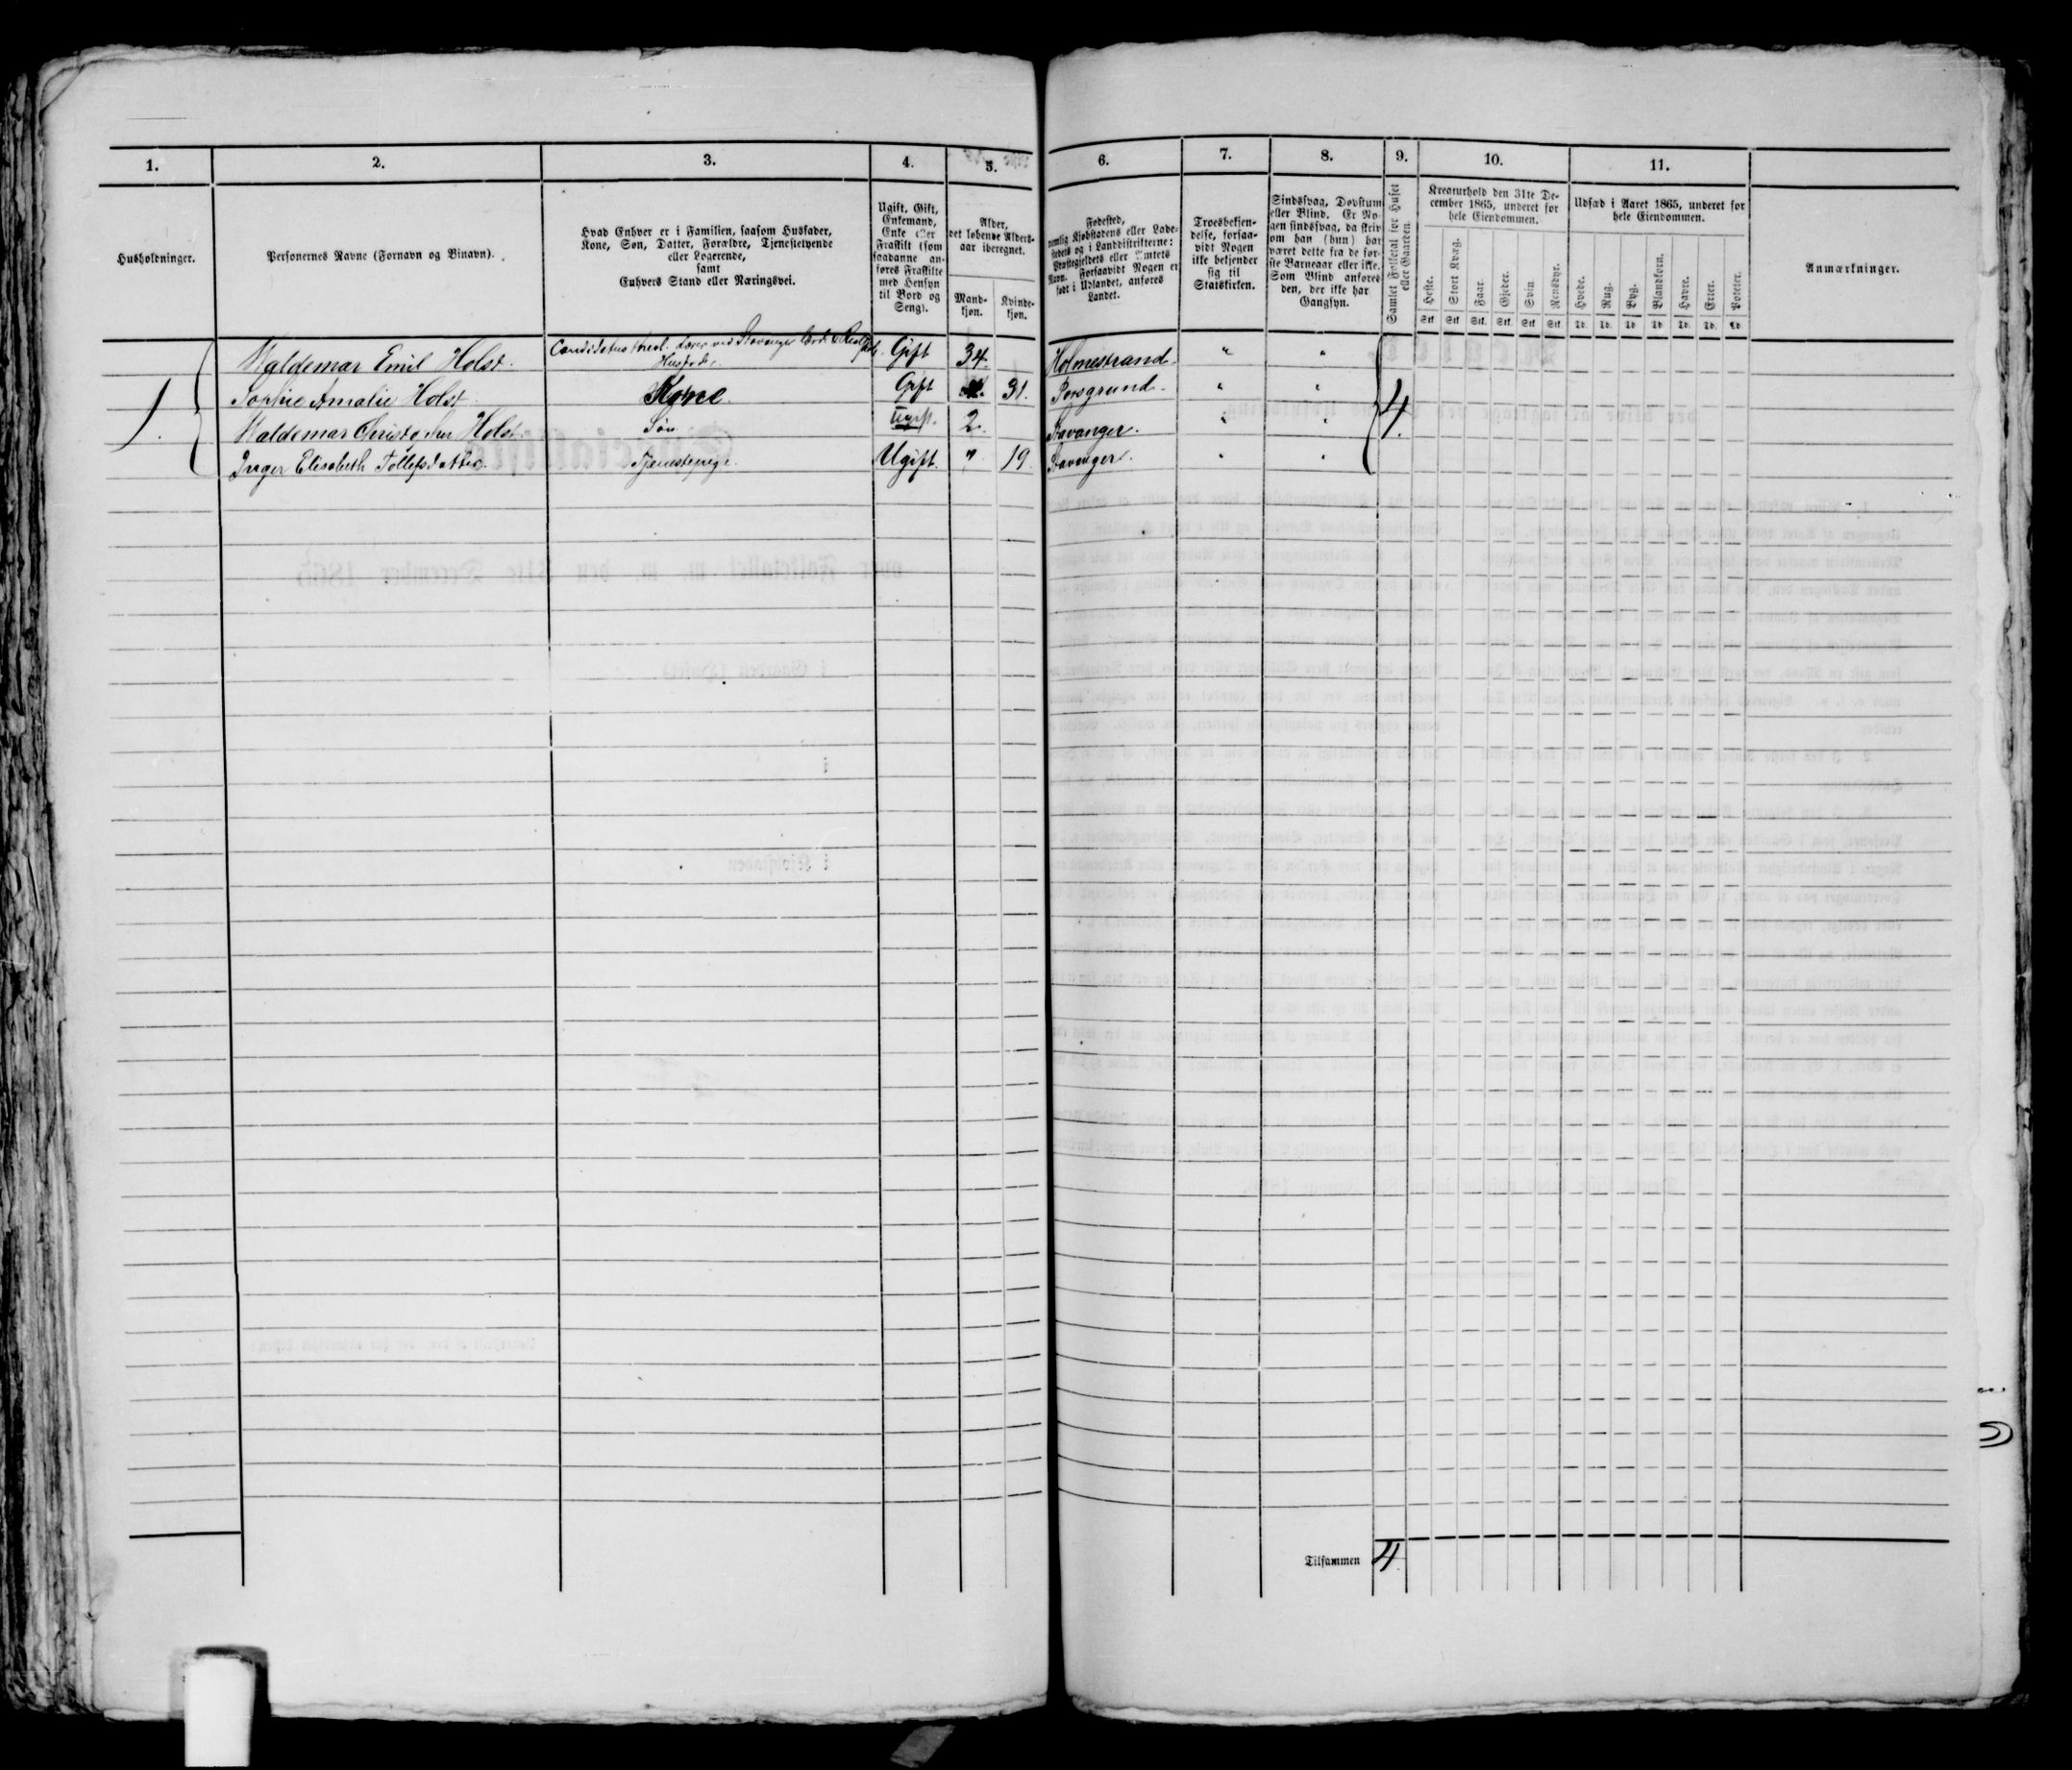 1.
2.
3.
4.
5.
6.
7.
8.
9.
10.
11.
Husholdninger.
Personernes Navne (Fornavn og Binavn).
Hvad Enhver er i Familien, saasom Husfader,
Kone, Søn, Datter, Forældre, Tjenestetyende
eller Logerende,
samt
Enhvers Stand eller Næringsvei.
Ugift, Gift,
Enkemand,
Enke eller
Fraskilt (som
saadanne an-
føres Fraskilte
med Hensyn
til Bord og
Seng).
Alder,
det løbende Alders-
aar iberegnet.
Mand-
kjøn.
Kvinde-
kjøn.
Fødested,
nemlig Kjøbstadens eller Lade-
stedets og i Landdistrikterne:
Præstegjeldets eller Amtets
Navn. Forsaavidt Nogen er
født i Udlandet, anføres
Landet.
Troesbekjen-
delse, forsaa-
vidt Nogen
ikke bekjender
sig til
Statskirken.
Sindssvag, Døvstum
eller Blind. Er No-
gen sindssvag, da skriv
om han (hun) har
været dette fra de før-
ste Barneaar eller ikke.
Som Blind anføres
den, der ikke har
Gangsyn.
Samlet Folketal for Huset
eller Gaarden.
Kreaturhold den 31te De-
cember 1865, underet for
hele Eiendommen.
Heste.
Stort Kvæg.
Faar.
Gjeder.
Svin.
Rensdyr.
Stk. Stk. Stk. Stk. Stk. Stk.
Udsæd i Aaret 1865, underet for
hele Eiendommen.
Hvede.
Rug.
Byg.
Blandkorn.
Havre.
Erter.
Poteter.
Td. Td. Td. Td. Td. Td. Td.
Anmærkninger.
1.
Waldemar Emil Holst. Candidatus theol. Lærer ved Stavanger Lærd. & Realskole.
Husfader. Gift 34. Holmestrand. " "
Sophie Amalie Holst Kone. Gift 31. Porsgrund. " "
Waldemar Christopher Holst. Søn Ugift. 2. Stavanger. " "
Inger Elisabeth Tollefsdatter. Tjenestepige. Ugift. " 19 Stavanger. " "
4.
Tilsammen 4.